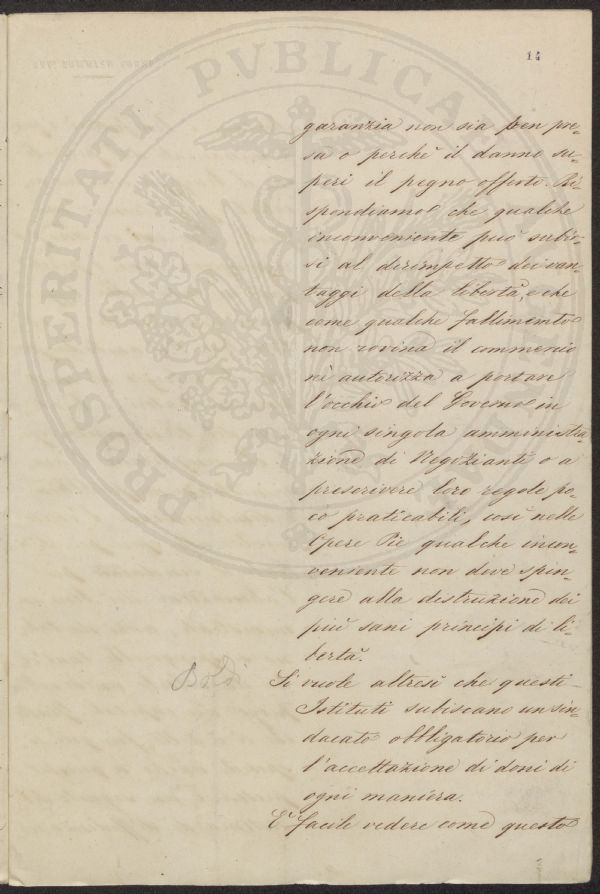 14
garanzia non sia ben pre-
sa o perchè il danno su-
peri il pegno offerto. Ri-
spondiamo che qualche
inconveniente può subir-
si al dirimpetto dei van-
taggi della libertà, e che
come qualche fallimento
non rovina il commercio
nè autorizza a portare
l'occhio del Governo in
ogni singola amministra
zione di Negozianti o a
prescrivere loro regole po-
co praticabili, così nelle
Opere Pie qualche incon-
veniente non deve spin-
gere alla distruzione dei
più sani principi di li-
bertà.
Si vuole altresì che questi
Istituti subiscano un sin-
dacato obbligatorio per
l'accettazione di doni di
ogni maniera.
E' facile vedere come questo
PROSPERITATI PVBLICAE